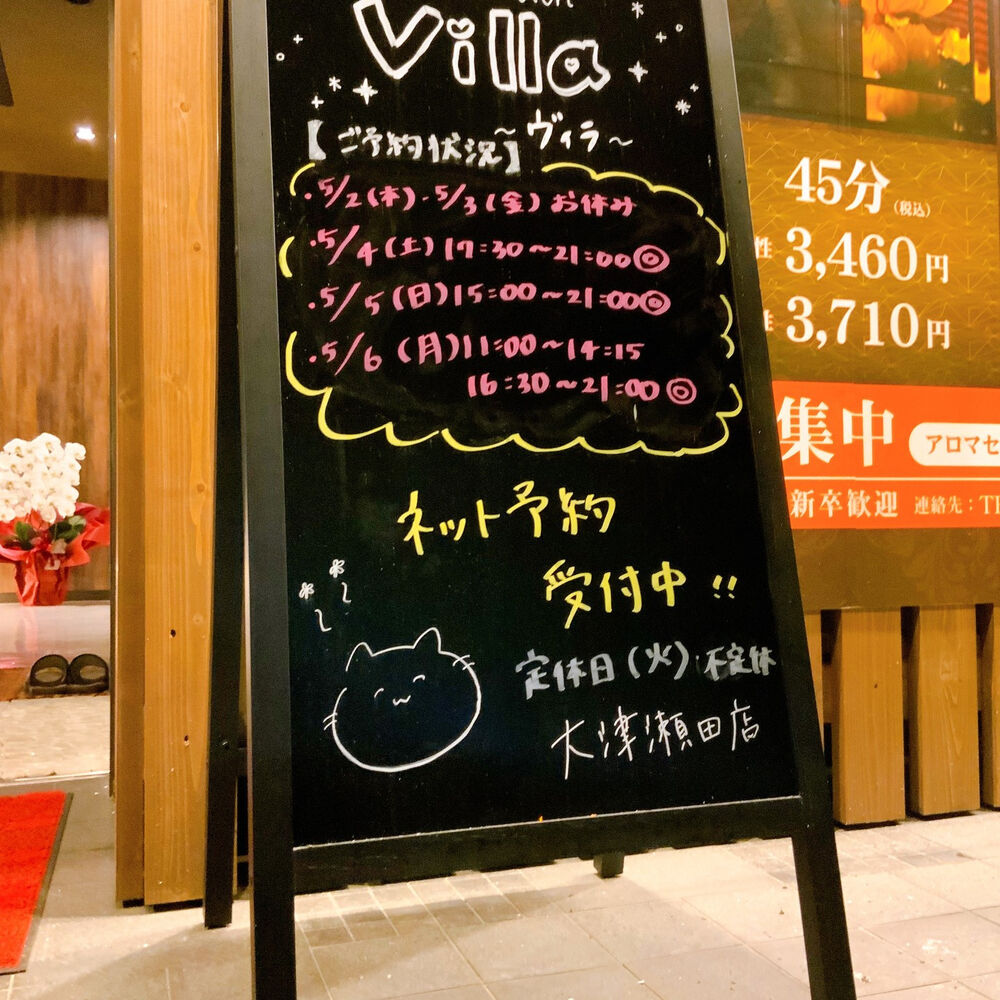 Villa
～ヴィラ～
【ご予約状況】
・5/2(木)・5/3(金)お休み
・5/4(土)17:30～21:00◎
・5/5(日)15:00～21:00◎
・5/6(月)11:00～14:15
16:30～21:00◎
ネット予約
受付中!!
定休日(火)不定休
大津瀬田店
45分(税込)
性 3,460円
性 3,710円
集中
アロマセ
新卒歓迎 連絡先:TE